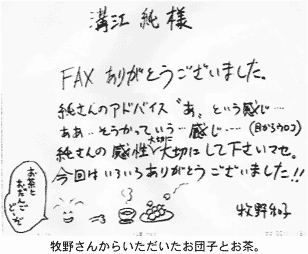 溝江 純 様
FAX ありがとうございました。
純さんのアドバイス〝あ〟という感じ…
ああ‥そうかっていう‥感じ‥‥(目からウロコ)
純さんの感性大切に大切にして下さいマセ。
今回はいろいろありがとうございました!!
牧野和子
お茶と
おだんご
どーぞ
牧野さんからいただいたお団子とお茶。